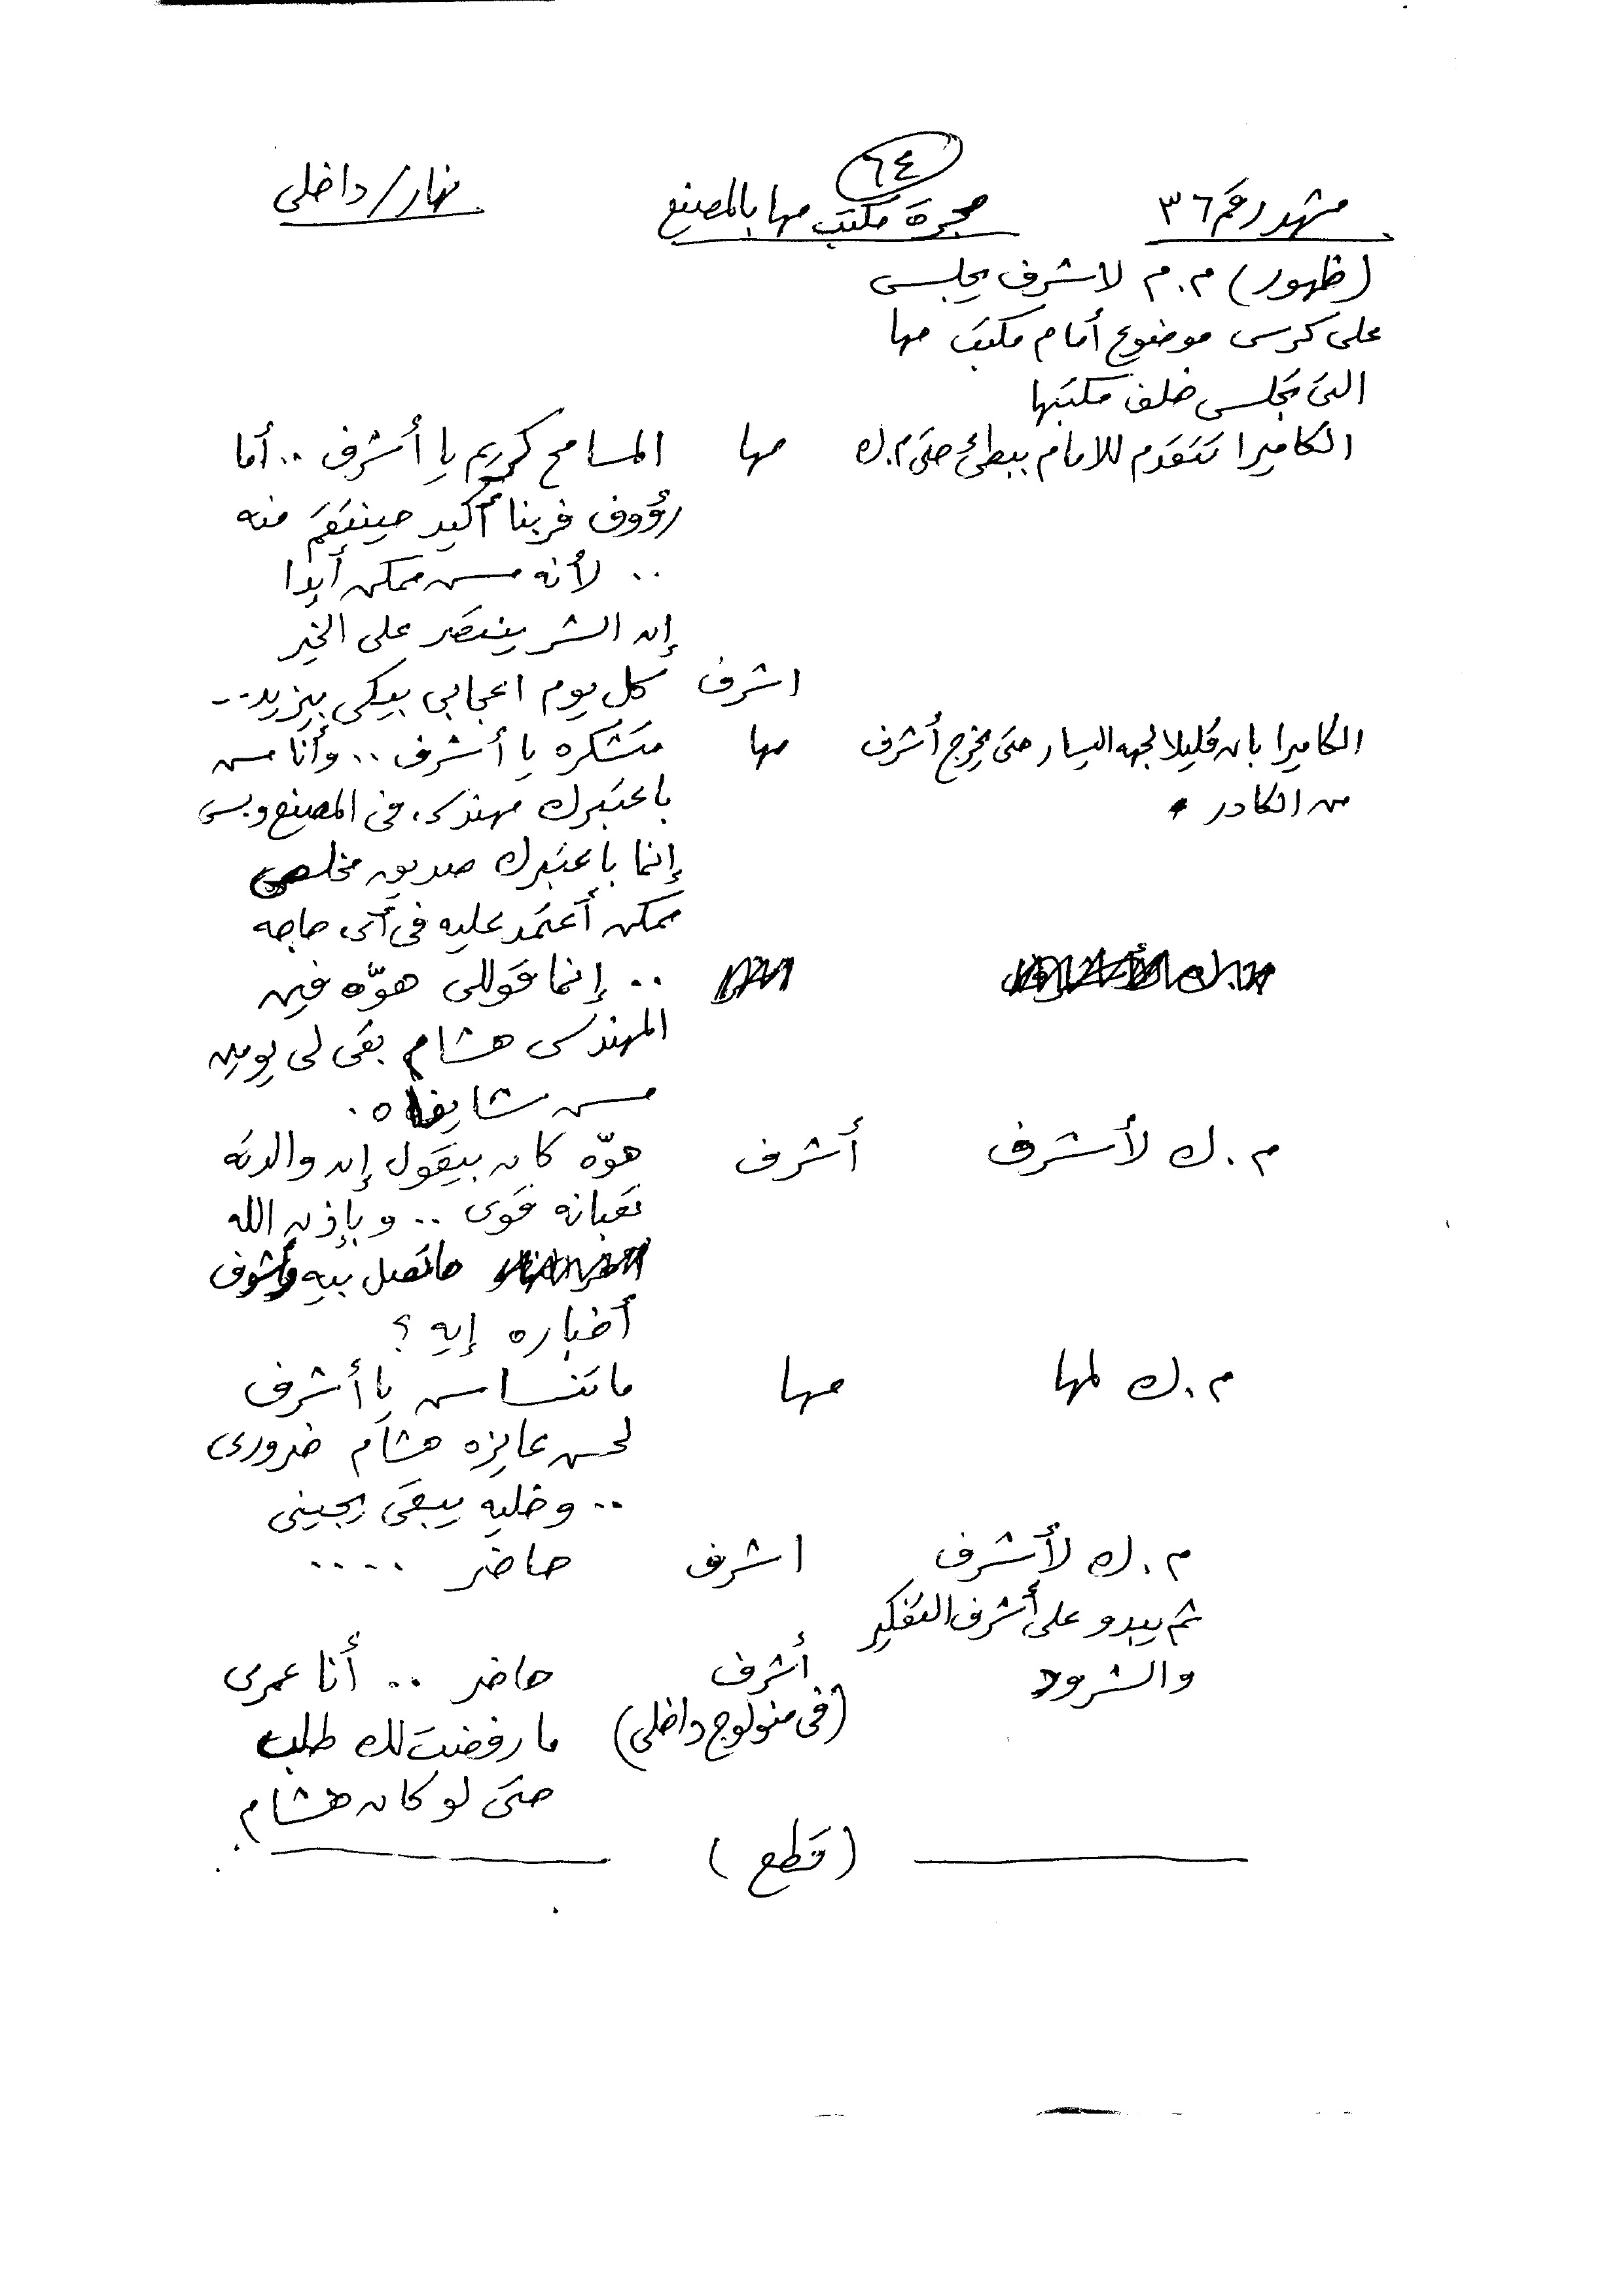 ٦٤
مشهد رقم ٣٦ حجرة مكتب مها بالمصنع نهار/داخلى
(ظهور) م.م لاشرف يجلس
على كرسى موضوع أمام مكتب مها
التى تجلس خلف مكتبها
الكاميرا تتقدم للامام ببطئ حتى م.ك مها المسامح كريم يا أشرف .. أما
رؤوف فربنا أكيد حينتقم منه
.. لأنه مش ممكن أبدا
إن الشر ينتصر على الخير
اشرف كل يوم اعجابى بيكى بيزيد..
الكاميرا بان قليلا لجهه اليسار حتى يخرج أشرف مها متشكره يا أشرف .. وأنا مش
من الكادر باعتبرك مهندس فى المصنع وبس
إنما باعتبرك صديق مخلص
ممكن أعتمد عليه فى أى حاجه
.. إنما قوللى هوّه فين
المهندس هشام بقى لى يومين
مش شايفاه.
م.ك لأشرف أشرف هوّه كان بيقول إن والدته
تعبانه قوى .. وبإذن الله
حاتصل بيه وأشوف
أخباره إيه ؟
م.ك لمها مها ماتنساش يا أشرف
لحسن عايزه هشام ضرورى
.. وخليه يبقى يجينى
م.ك لأشرف اشرف حاضر ....
ثم يبدو على أشرف التفكير
والشرود أشرف حاضر .. أنا عمرى
(فى منولوج داخلى) ما رفضت لك طلب
حتى لو كان هشام
(قطع)